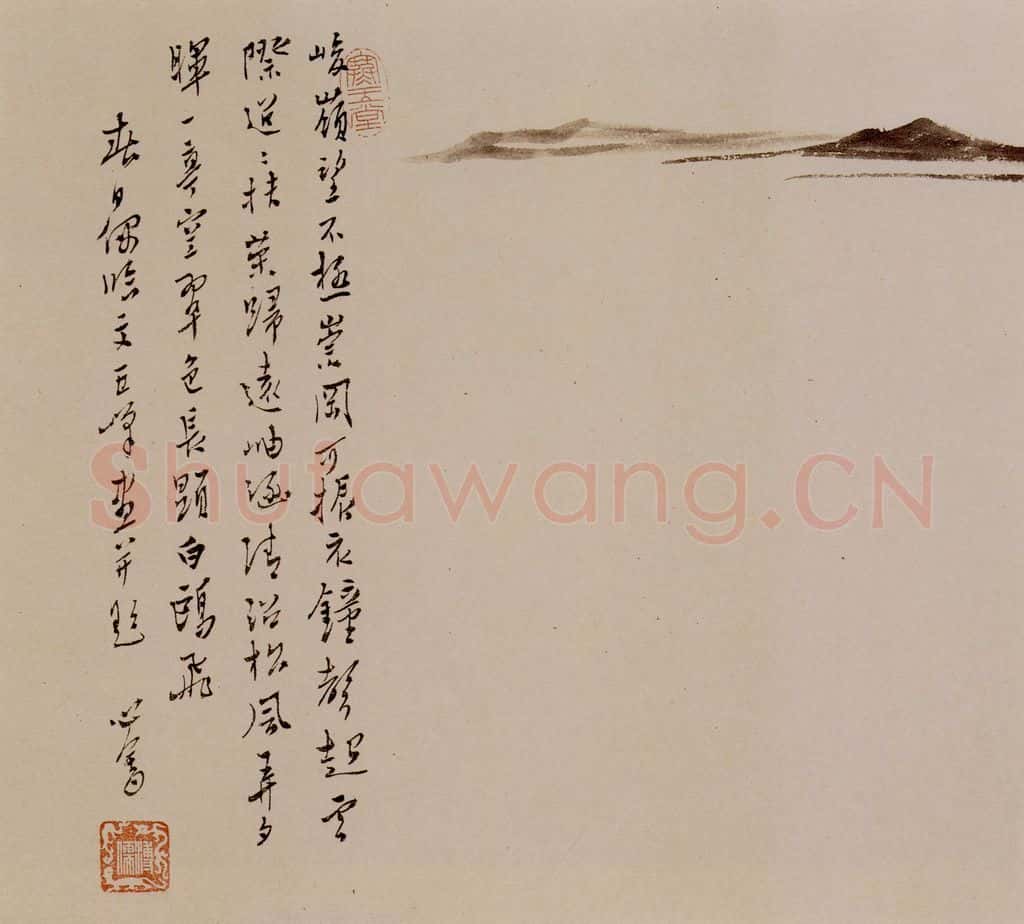 寒玉堂
峻嶺望不極崇岡可振衣鐘聲起雲
際迢〻扶歸遠岫涵清松風弄夕
暉一亭空翠色長白鷗飛
春日偶臨文五峰畫并題 心畬
溥儒
Shufawang.CN